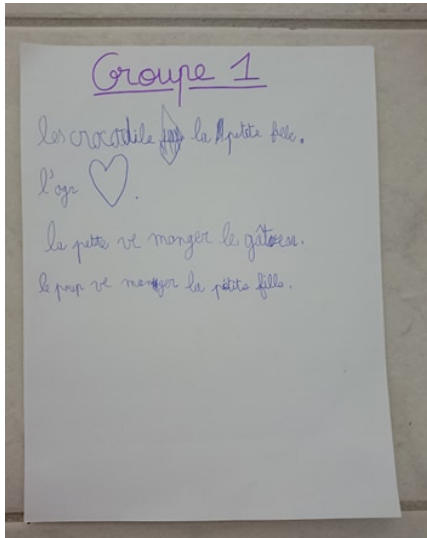 Groupe 1
les crocodile la petite fille.
l'ogr
la petite ve manger le gâteau.
le poup ve manger la petite fille.